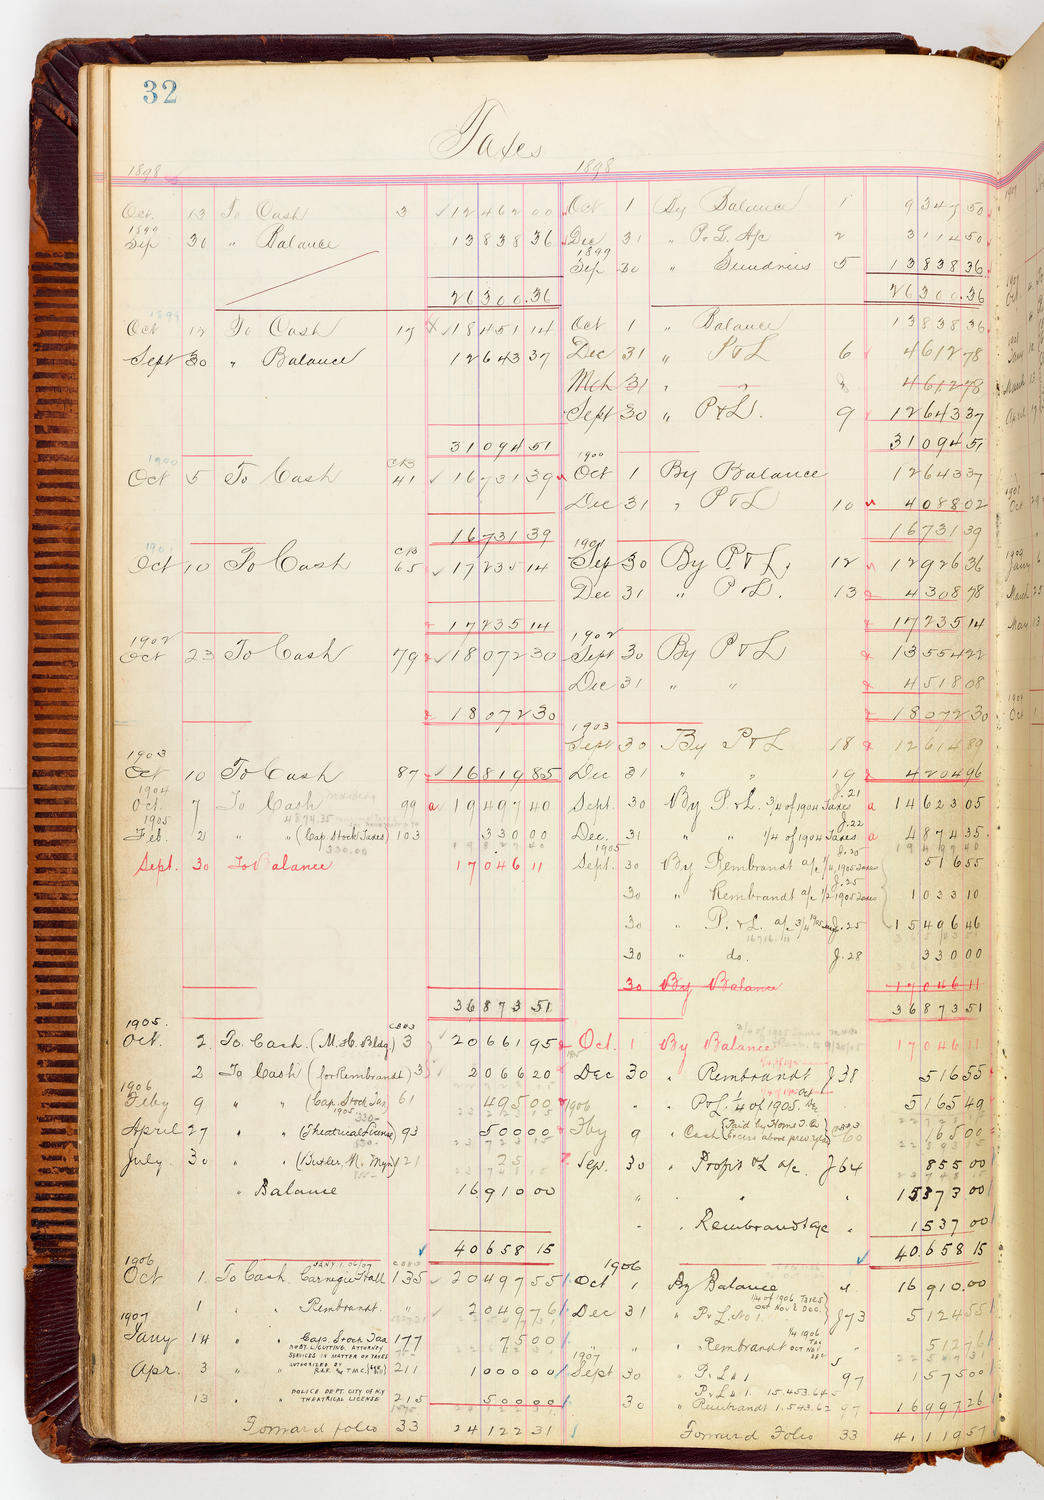 32
Taxes
1898 1898
Oct. 13 To Cash 3 12462 00 Oct 1 By Balance 1 9347 50
1899
Sep 30 " Balance 13838 36 Dec 31 " P & L A/c 2 3114 50
1899
Sep 30 " Sundries 5 13838 36
26300.36 26300.36
1899
Oct 12 To Cash 17 18451 14 Oct 1 " Balance 13838 36
Sept 30 " Balance 12643 37 Dec 31 " P & L 6 4612 78
Mch 31 " 8 4612 78
Sept 30 " P & L. 9 12643 37
31094 51 31094 51
1900 1900
Oct 5 To Cash CB 41 16731 39 Oct 1 By Balance 12643 37
Dec 31 " P & L 10 4088 02
16731 39 16731 39
1901 1901
Oct 10 To Cash CB 65 17235 14 Sep 30 By P & L. 12 12926 36
Dec 31 " P & L. 13 4308 78
17235 14 17235 14
1902 1902
Oct 23 To Cash 79 18072 30 Sept 30 By P & L 13554 22
Dec 31 " " 4518 08
18072 30 18072 30
1903
Sept 30 By P & L 18 12614 89
1903
Oct 10 To Cash 87 16819 85 Dec 31 " " 19 4204 96
1904
Oct. 7 To Cash 99 19497 40 Sept. 30 By P & L. 3/4 of 1904 Taxes J.21 14623 05
4874.35
1905
Feb. 2 " " (Cap. Stock Taxes) 103 330 00 Dec. 31 " " 1/4 of 1904 Taxes J.22 4874 35
330.00
1905
Sept. 30 To Balance 17046 11 Sept. 30 By Rembrandt a/c 1/4 1905 Taxes J.25 516 55
30 " Rembrandt a/c 1/2 1905 Taxes J.25 1033 10
30 " P. & L. a/c 3/4 1905 J.25 15406 46
16716.11
30 " do. J.28 330 00
30 By Balance 17046 11
36873 51 36873 51
1905.
Oct. 2 To Cash (M. H. Bldg) CB#3 3 20661 95 Oct. 1 By Balance 17046 11
2 To Cash (for Rembrandt) 3 2066 20 Dec 30 " Rembrandt J38 516 55
1906 1906
Feby 9 " " (Cap. Stock Tax 1905) 61 495 00 " " P & L. 1/4 of 1905. 5165 49
April 27 " " (Theatrical License) 93 500 00 Fby 9 " Cash (Paid by Home T. Co. 60 165 00
July 30 " " (Butler, N. Myn) 121 25 Sep. 30 " Profit & L a/c. J64 855 00
" Balance 16910 00 " " " " 15373 00
" " Rembrandt a/c " 1537 00
40658 15 40658 15
1906 1906
Oct 1 To Cash. Carnegie Hall JANY 1. 06/07 135 20497 55 Oct 1 By Balance " 16910.00
1 " " Rembrandt. " 2049 76 Dec 31 " P & L. No 1. 1/4 of 1906 TAXES OCT NOV & DEC. J73 5124 55
1907
Jany 14 " " Cap. Stock Tax 177 75 00 " Rembrandt 1/4 1906 TAX OCT NOV DEC 512 76
ROBT. L. CUTTING. ATTORNEY
SERVICES IN MATTER OF TAXES
AUTHORIZED BY
1907
Apr. 3 " " R.A.F. & T.M.C. 211 1000 00 Sept 30 " P & L # 1 97 1575 00
13 " " POLICE DEPT. CITY OF NY
THEATRICAL LICENSE 215 500 00 30 " P & L # 1. 15.453.64
" Rembrandt 1.543.62 97 16997 26
Forward folio 33 24122 31 Forward Folio 33 41119 57